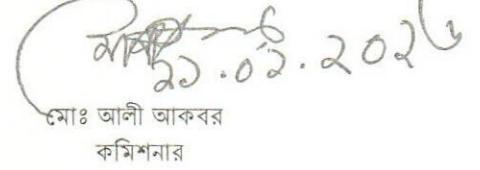 ২১.০২.২০২৬
মোঃ আলী আকবর
কমিশনার